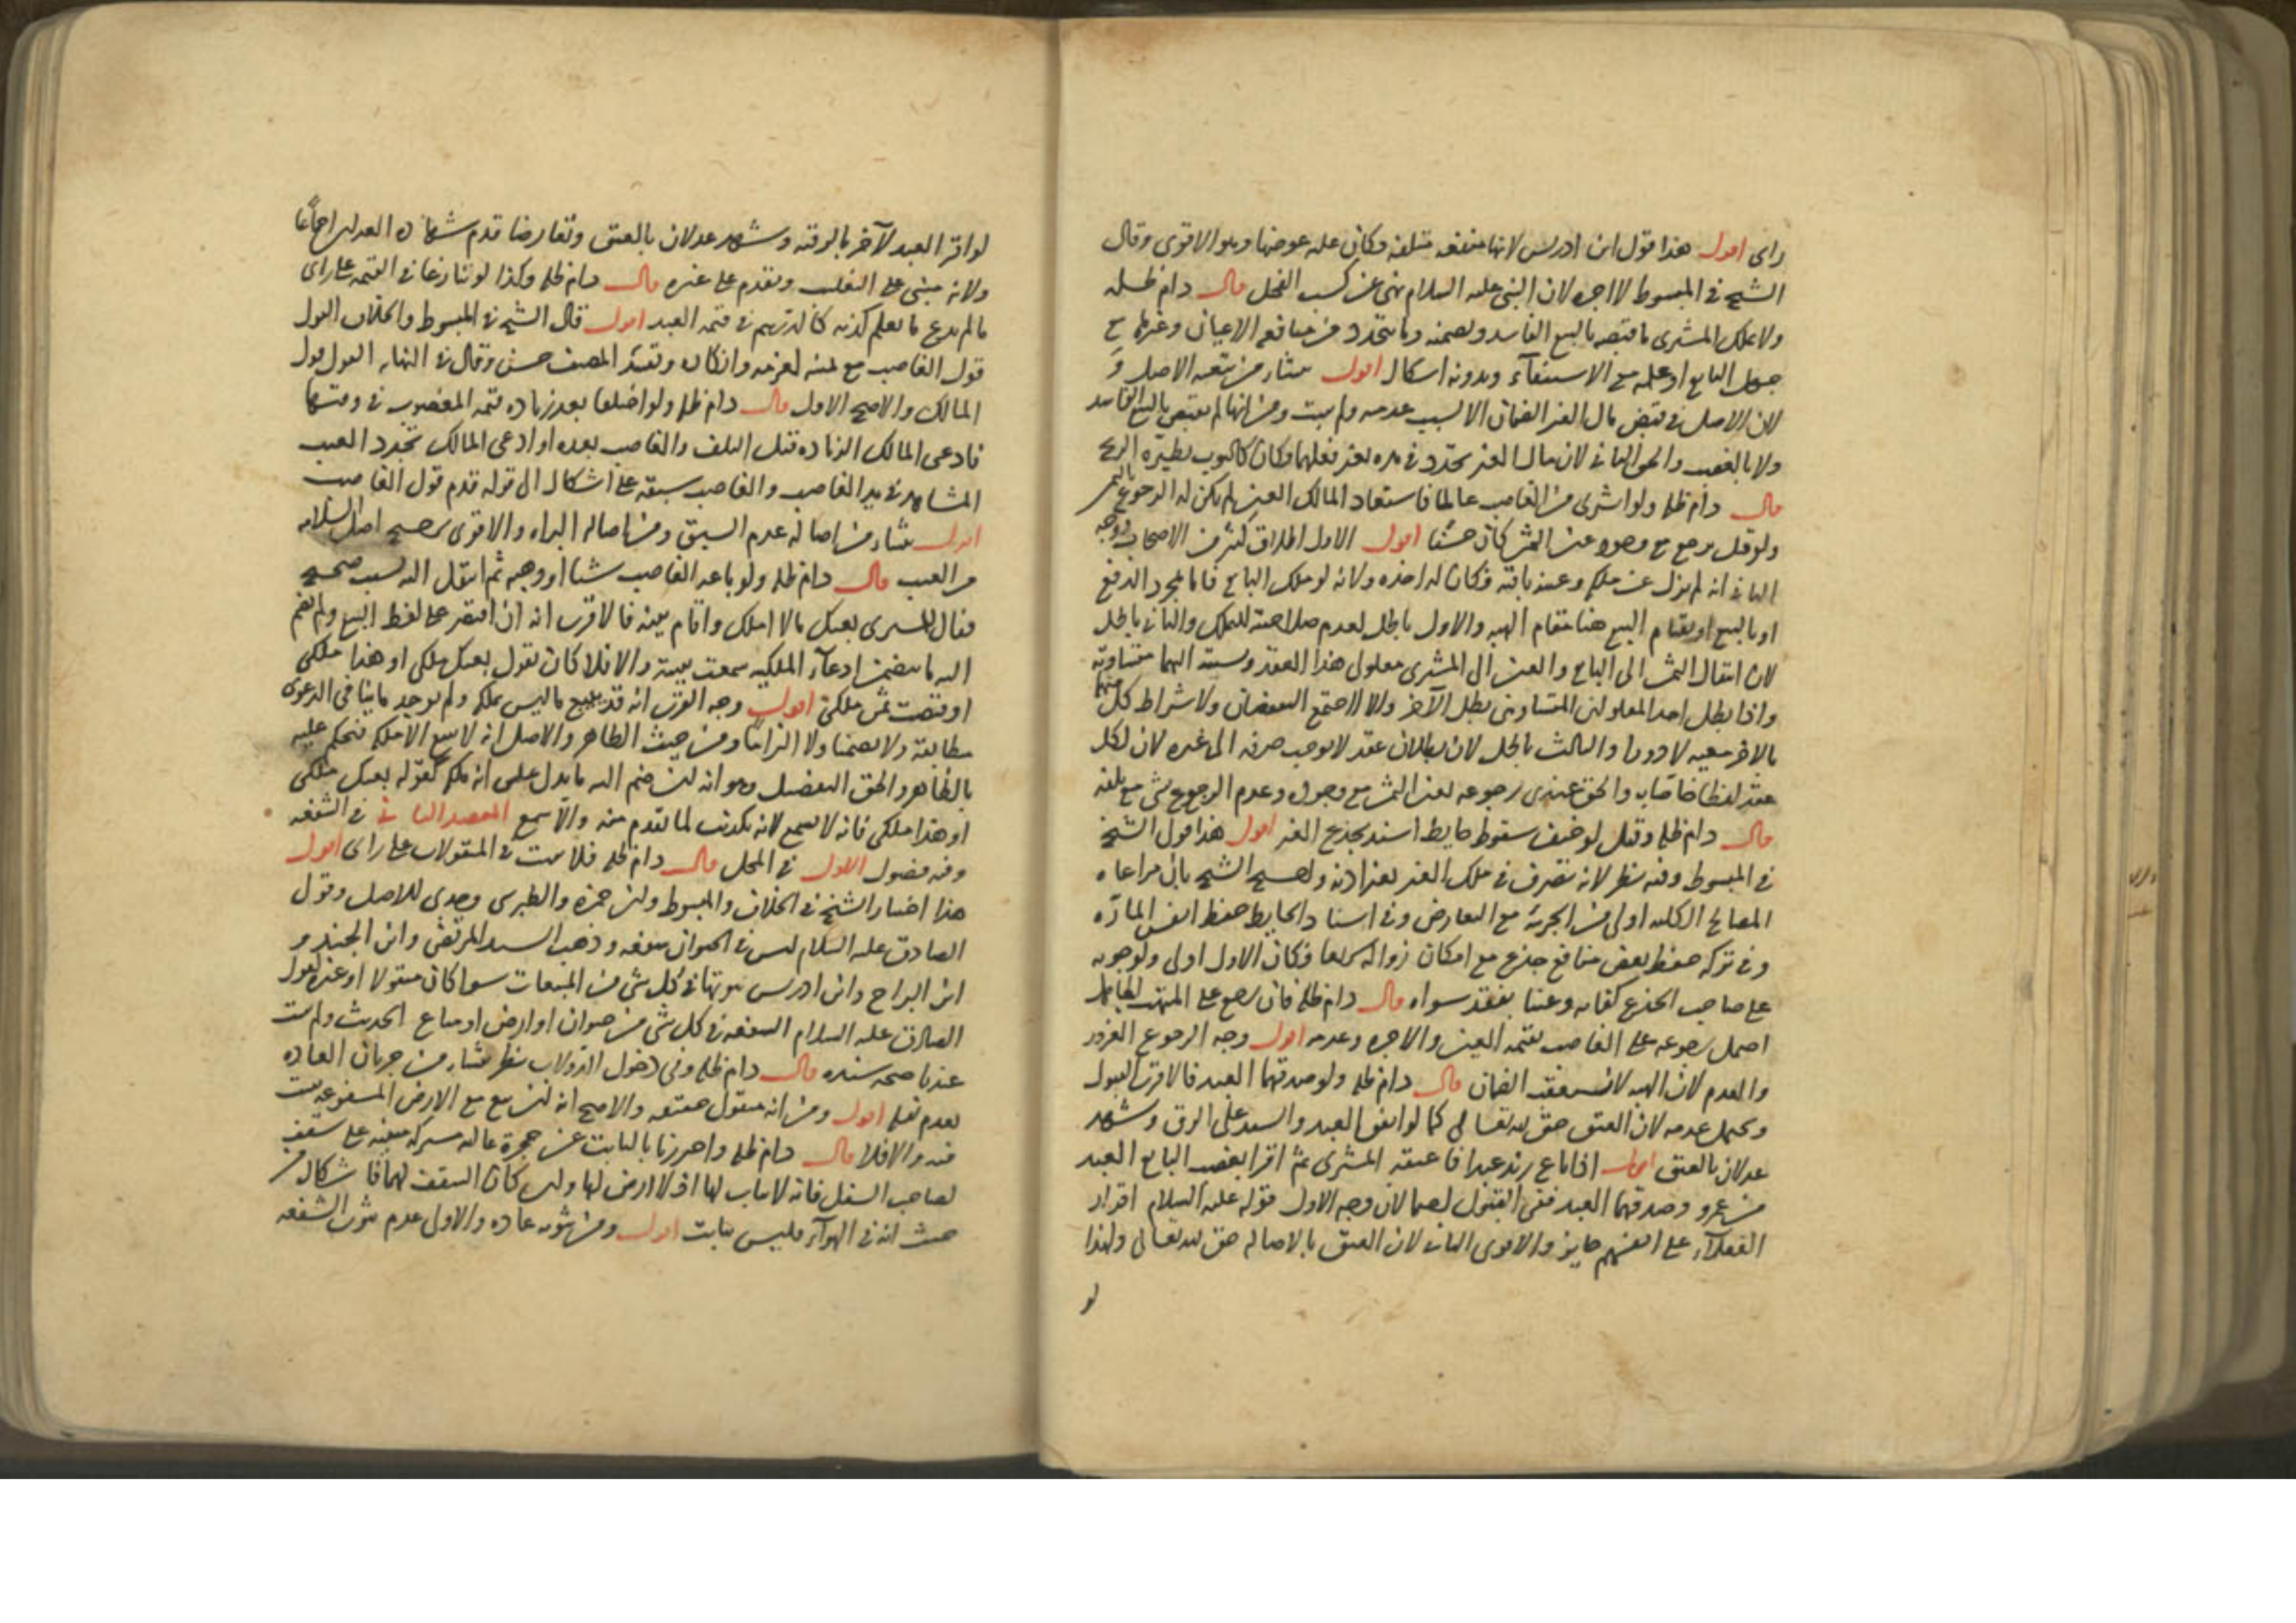 رأى اقول هذا قول ابن ادريس لانها منفعة متلفة وكان عليه عوضها وهو الاقوى وقال
الشيخ في المبسوط لا اجرة لان النبي عليه السلام نهى عن كسب الفحل قال دام ظله
ولا يملك المشترى ما قبضه بالبيع الفاسد ويضمنه وما يتجدد من منافع الاعيان وغيرها مع
جهل البايع او علمه مع الاستيفاء وبدونه اشكال اقول ينشأ من تبعية الاصل و
لان الاصل في قبض مال الغير الضمان الا لسبب عدمه ولم يثبت ومن انها لم يقبض بالبيع الفاسد
ولا بالغصب والحق الثاني لان مال الغير تجدد في يده بغير فعلهما وكان كالثوب يطيره الريح
قال دام ظله ولو اشترى من الغاصب عالما فاستعاد المالك العين لم يكن له الرجوع بالثمن
ولو قيل يرجع مع وجود عين الثمن كان حسنا اقول الاول اطلاق كثير من الاصحاب ووجه
الثاني انه لم يزل عن ملكه وعينه باقية فكان له اخذه ولانه لو ملك البايع فاما بمجرد الدفع
او بالبيع او بقيام البيع هنا مقام الهبة والاول باطل لعدم صلاحيته للتملك والثاني باطل
لان انتقال الثمن الى البايع والعين الى المشترى معلولى هذا العقد ونسبته اليهما متساوية
واذا بطل احد المعلولين المتساويين بطل الآخر والا لاجتمع النقيضان ولاشتراط كل منهما
بالاخر معية لا دورا والثالث باطل لان بطلان عقد لا يوجب صرفه الى غيره لان لكل
عقد لفظا خاصا به والحق عندى رجوعه بعين الثمن مع وجوده وعدم الرجوع بشى مع تلفه
قال دام ظله وقيل لو خيف سقوط حايط اسند بجذع الغير اقول هذا قول الشيخ
في المبسوط وفيه نظر لانه تصرف في ملك الغير بغير اذنه ولصحح الشيخ بان مراعاة
المصالح الكلية اولى من الجزئية مع التعارض وفى اسناد الحايط حفظ انفس المارة
وفى تركه حفظ بعض منافع جذع مع امكان زواله سريعا فكان الاول اولى ولوجوبه
على صاحب الجذع كفاية وعينا بفقد سواه قال دام ظله فان رجع على المتهب الجاهل
احتمل رجوعه على الغاصب بقيمة العين والاجرة وعدمه اقول وجه الرجوع الغرور
والعدم لان الهبة لا تستعقب الضمان قال دام ظله ولو صدقهما العبد فالاقرب القبول
ويحتمل عدمه لان العتق حق لله تعالى كما لو اتفق العبد والسيد على الرق وشهد
عدلان بالعتق اقول اذا باع زيد عبدا فاعتقه المشترى ثم اقرا بغصب البايع العبد
من عمرو وصدقهما العبد ففى القبول احتمالان وجه الاول قوله عليه السلام اقرار
العقلاء على انفسهم جايز والاقوى الثاني لان العتق بالاصالة حق لله تعالى ولهذا
لو
لو اقر العبد لآخر بالرقية وشهد عدلان بالعتق وتعارضا قدم شهادة العدلين اجماعا
ولانه مبنى على التغليب ويقدم على غيره قال دام ظله وكذا لو تنازعا في القيمة على راى
ما لم يدع ما يعلم كذبه كالدرهم في قيمة العبد اقول قال الشيخ في المبسوط والخلاف القول
قول الغاصب مع يمينه لغرمه وانكاره وتقييد المصنف حسن وقال في النهاية القول قول
المالك والاصح الاول قال دام ظله ولو اختلفا بعد زيادة قيمة المغصوب في وقتها
فادعى المالك الزيادة قبل التلف والغاصب بعده او ادعى المالك تجدد العيب
المشاهد في يد الغاصب والغاصب سبقه على اشكال الى قوله قدم قول الغاصب
اقول ينشأ من اصالة عدم السبق ومن اصالة البراءة والاقوى ترجيح اصل السلامة
من العيب قال دام ظله ولو باعه الغاصب شيئا او وهبه ثم انتقل اليه بسبب صحيح
فقال للمشترى بعتك ما لا املك واقام بينة فالاقرب انه ان اقتصر على لفظ البيع ولم يضم
اليه ما يتضمن ادعاء الملكية سمعت بينته والا فلا كان يقول بعتك ملكى او هذا ملكى
او قبضت ثمن ملكى اقول وجه القرب انه قد يبيع ما ليس بملكه ولم يوجد ما ينافى الدعوى
مطابقة ولا تضمنا ولا التزاما ومن حيث الظاهر والاصل انه لا يبيع الا ملكه فيحكم عليه
بالظاهر والحق التفصيل وهو انه ان ضم اليه ما يدل على انه ملكه كقوله بعتك ملكى
او هذا ملكى فانه لا يسمع لانه تكذيب لما تقدم منه والا سمع المقصد الثانى في الشفعة
وفيه فصول الاول في المحل قال دام ظله فلا يثبت في المنقولات على راى اقول
هذا اختيار الشيخ في الخلاف والمبسوط وابن حمزة والطبرسى وجدى للاصل وقول
الصادق عليه السلام ليس في الحيوان شفعة وذهب السيد المرتضى وابن الجنيد و
ابن البراج وابن ادريس ثبوتها في كل شى من المبيعات سوا كان منقولا او غيره لقول
الصادق عليه السلام الشفعة في كل شى من حيوان او ارض او متاع الحديث ولم يثبت
عندنا صحة سنده قال دام ظله وفى دخول الدولاب نظر ينشأ من جريان العادة
بعدم نقله اقول ومن انه منقول حقيقة والاصح انه ان بيع مع الارض المشفوعة يثبت
فيه والا فلا قال دام ظله واحترزنا بالثابت عن حجرة عالية مشتركة مبنية على سقف
لصاحب السفل فانه لا ثبات لها اذ لا ارض لها ولو كان السقف لهما فاشكال من
حيث انه في الهواء فليس بثابت اقول ومن ثبوته عادة والاولى عدم ثبوت الشفعة